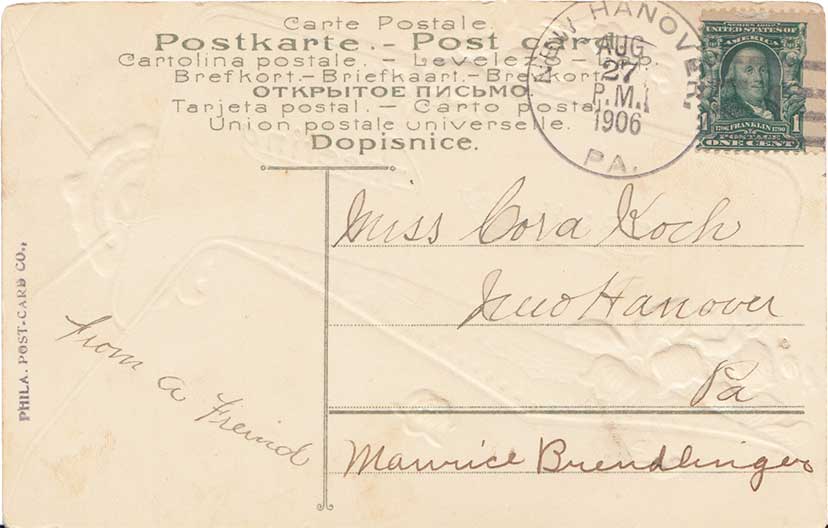 Carte Postale.
Postkarte. - Post card.
Cartolina postale. - Levelező-Lap.
Brefkort.- Briefkaart.- Brevkort
ОТКРЫТОЕ ПИСЬМО.
Tarjeta postal. - Carto postal
Union postale universelle.
Dopisnice.
NEW HANOVER,
AUG
27
P.M.
1906
PA.
SERIES 1902
UNITED STATES OF
AMERICA
1706 FRANKLIN 1790
POSTAGE
1
ONE CENT
Miss Cora Koch
New Hanover
Pa
Maurice Brendlinger
from a Freind
PHILA. POST-CARD CO.,